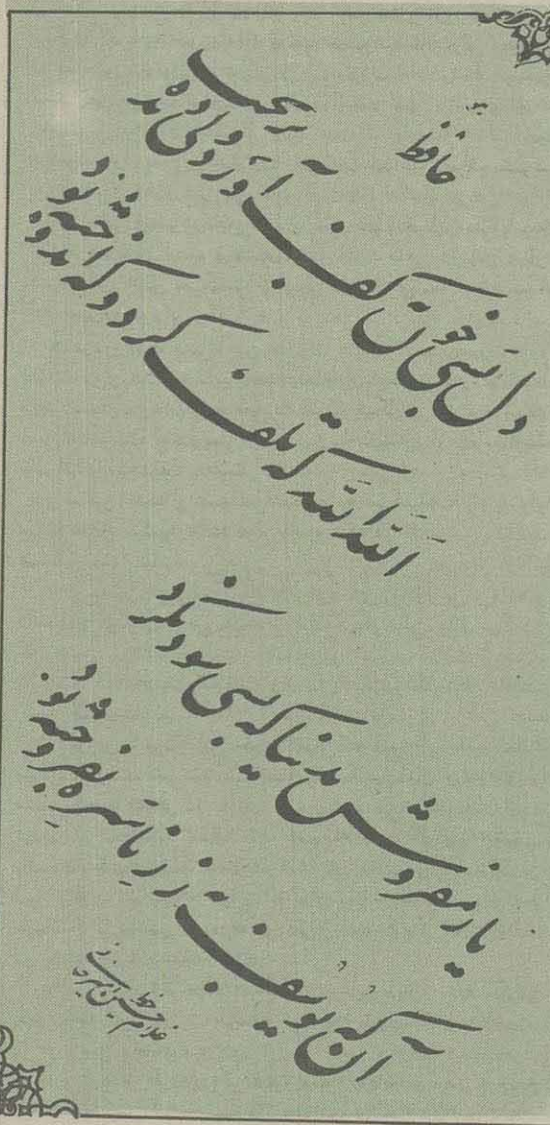 حافظ
دل بسی خون بکف آورد ولی دیده بریخت
الله الله که تلف کرد و که اندوخته بود
یار مفروش بدنیا که بسی سود نکرد
آن که یوسف بزر ناسره بفروخته بود
خط
غلامحسین امیرخانی